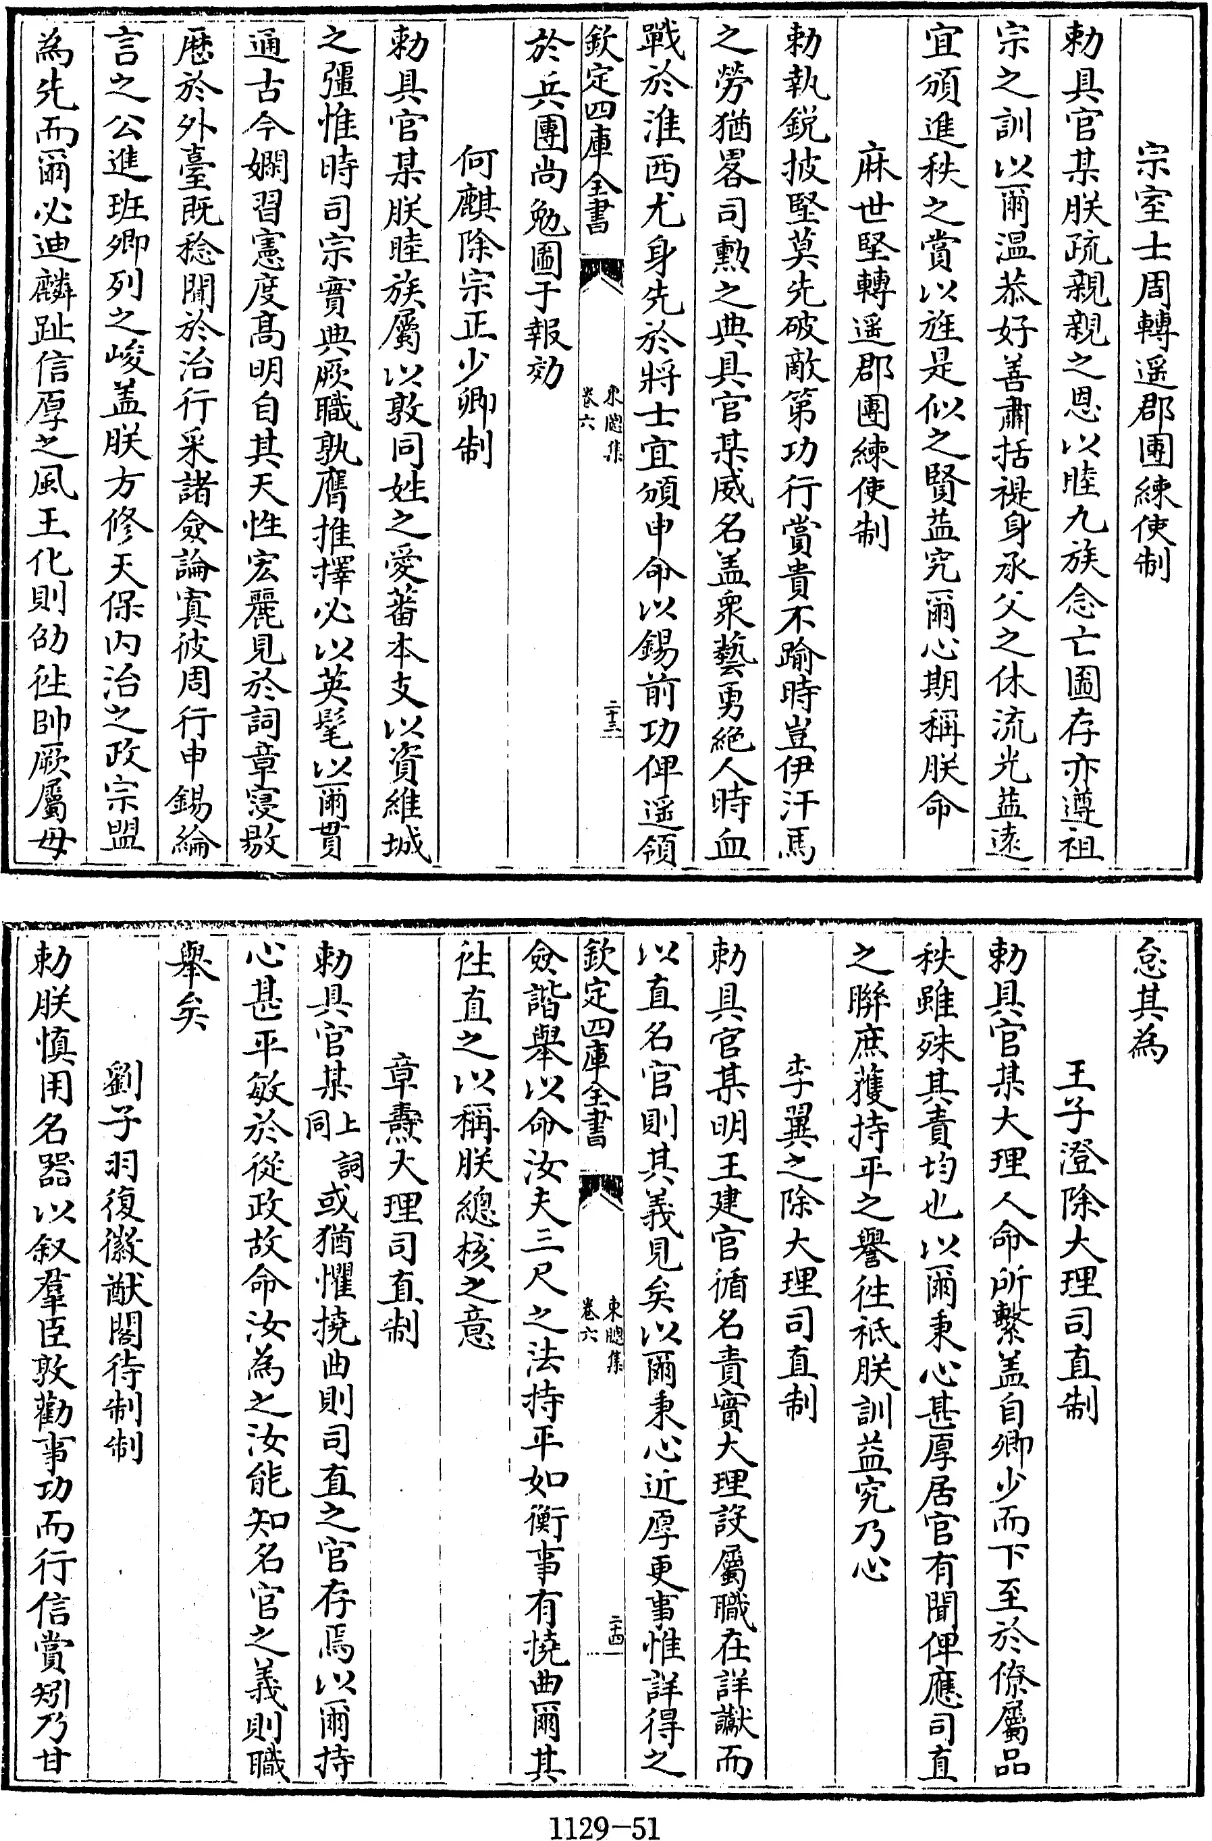 宗室士周轉遥郡團練使制
勅具官某朕疏親親之恩以睦九族念亡圖存亦遵祖
宗之訓以爾温恭好善肅括禔身承父之休流光益遠
宜頒進秩之賞以旌是似之賢益究爾心期稱朕命
麻世堅轉遥郡團練使制
勅執鋭披堅莫先破敵第功行賞貴不踰時豈伊汗馬
之勞猶畧司勲之典具官某威名盖衆藝勇絶人時血
戰於淮西尤身先於將士宜頒申命以錫前功俾遥領
欽定四庫全書
東牕集
卷六
二十三
於兵團尚勉圖于報効
何麒除宗正少卿制
勅具官某朕睦族屬以敦同姓之愛蕃本支以資維城
之彊惟時司宗實典厥職孰膺推擇必以英髦以爾貫
通古今嫻習憲度髙明自其天性宏麗見於詞章寖敭
歴於外臺既稔聞於治行采諸僉論寘彼周行申錫綸
言之公進班卿列之峻盖朕方修天保内治之政宗盟
為先而爾必迪麟趾信厚之風王化則劭徃帥厥屬毋
怠其為
王子澄除大理司直制
勅具官某大理人命所繫盖自卿少而下至於僚屬品
秩雖殊其責均也以爾秉心甚厚居官有聞俾應司直
之聨庶獲持平之譽徃祗朕訓益究乃心
李翼之除大理司直制
勅具官某明王建官循名責實大理設屬職在詳讞而
以直名官則其義見矣以爾秉心近厚更事惟詳得之
欽定四庫全書
東牕集
卷六
二十四
僉諧舉以命汝夫三尺之法持平如衡事有撓曲爾其
徃直之以稱朕總核之意
章燾大理司直制
勅具官某上詞同或猶懼撓曲則司直之官存焉以爾持
心甚平敏於從政故命汝為之汝能知名官之義則職
舉矣
劉子羽復徽猷閣待制制
勅朕慎用名器以叙羣臣敦勸事功而行信賞矧乃甘
1129-51